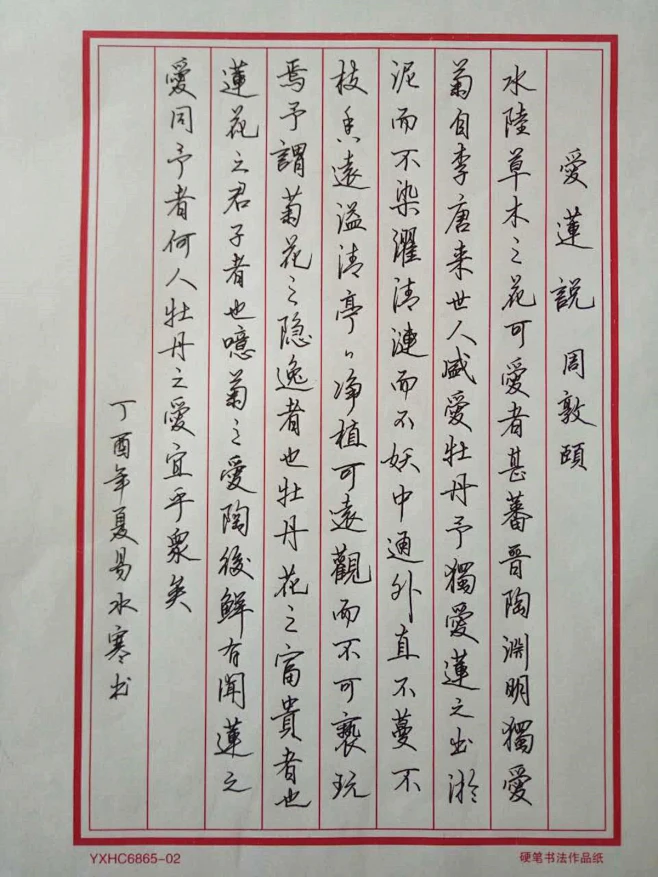 愛蓮説 周敦頤
水陸草木之花可愛者甚蕃晉陶淵明獨愛
菊自李唐来世人盛愛牡丹予獨愛蓮之出淤
泥而不染濯清漣而不妖中通外直不蔓不
枝香遠溢清亭〻净植可遠觀而不可褻玩
焉予謂菊花之隐逸者也牡丹花之富貴者也
蓮花之君子者也噫菊之愛陶後鮮有聞蓮之
愛同予者何人牡丹之愛宜乎衆矣
丁酉年夏易水寒书
YXHC6865-02
硬笔书法作品纸